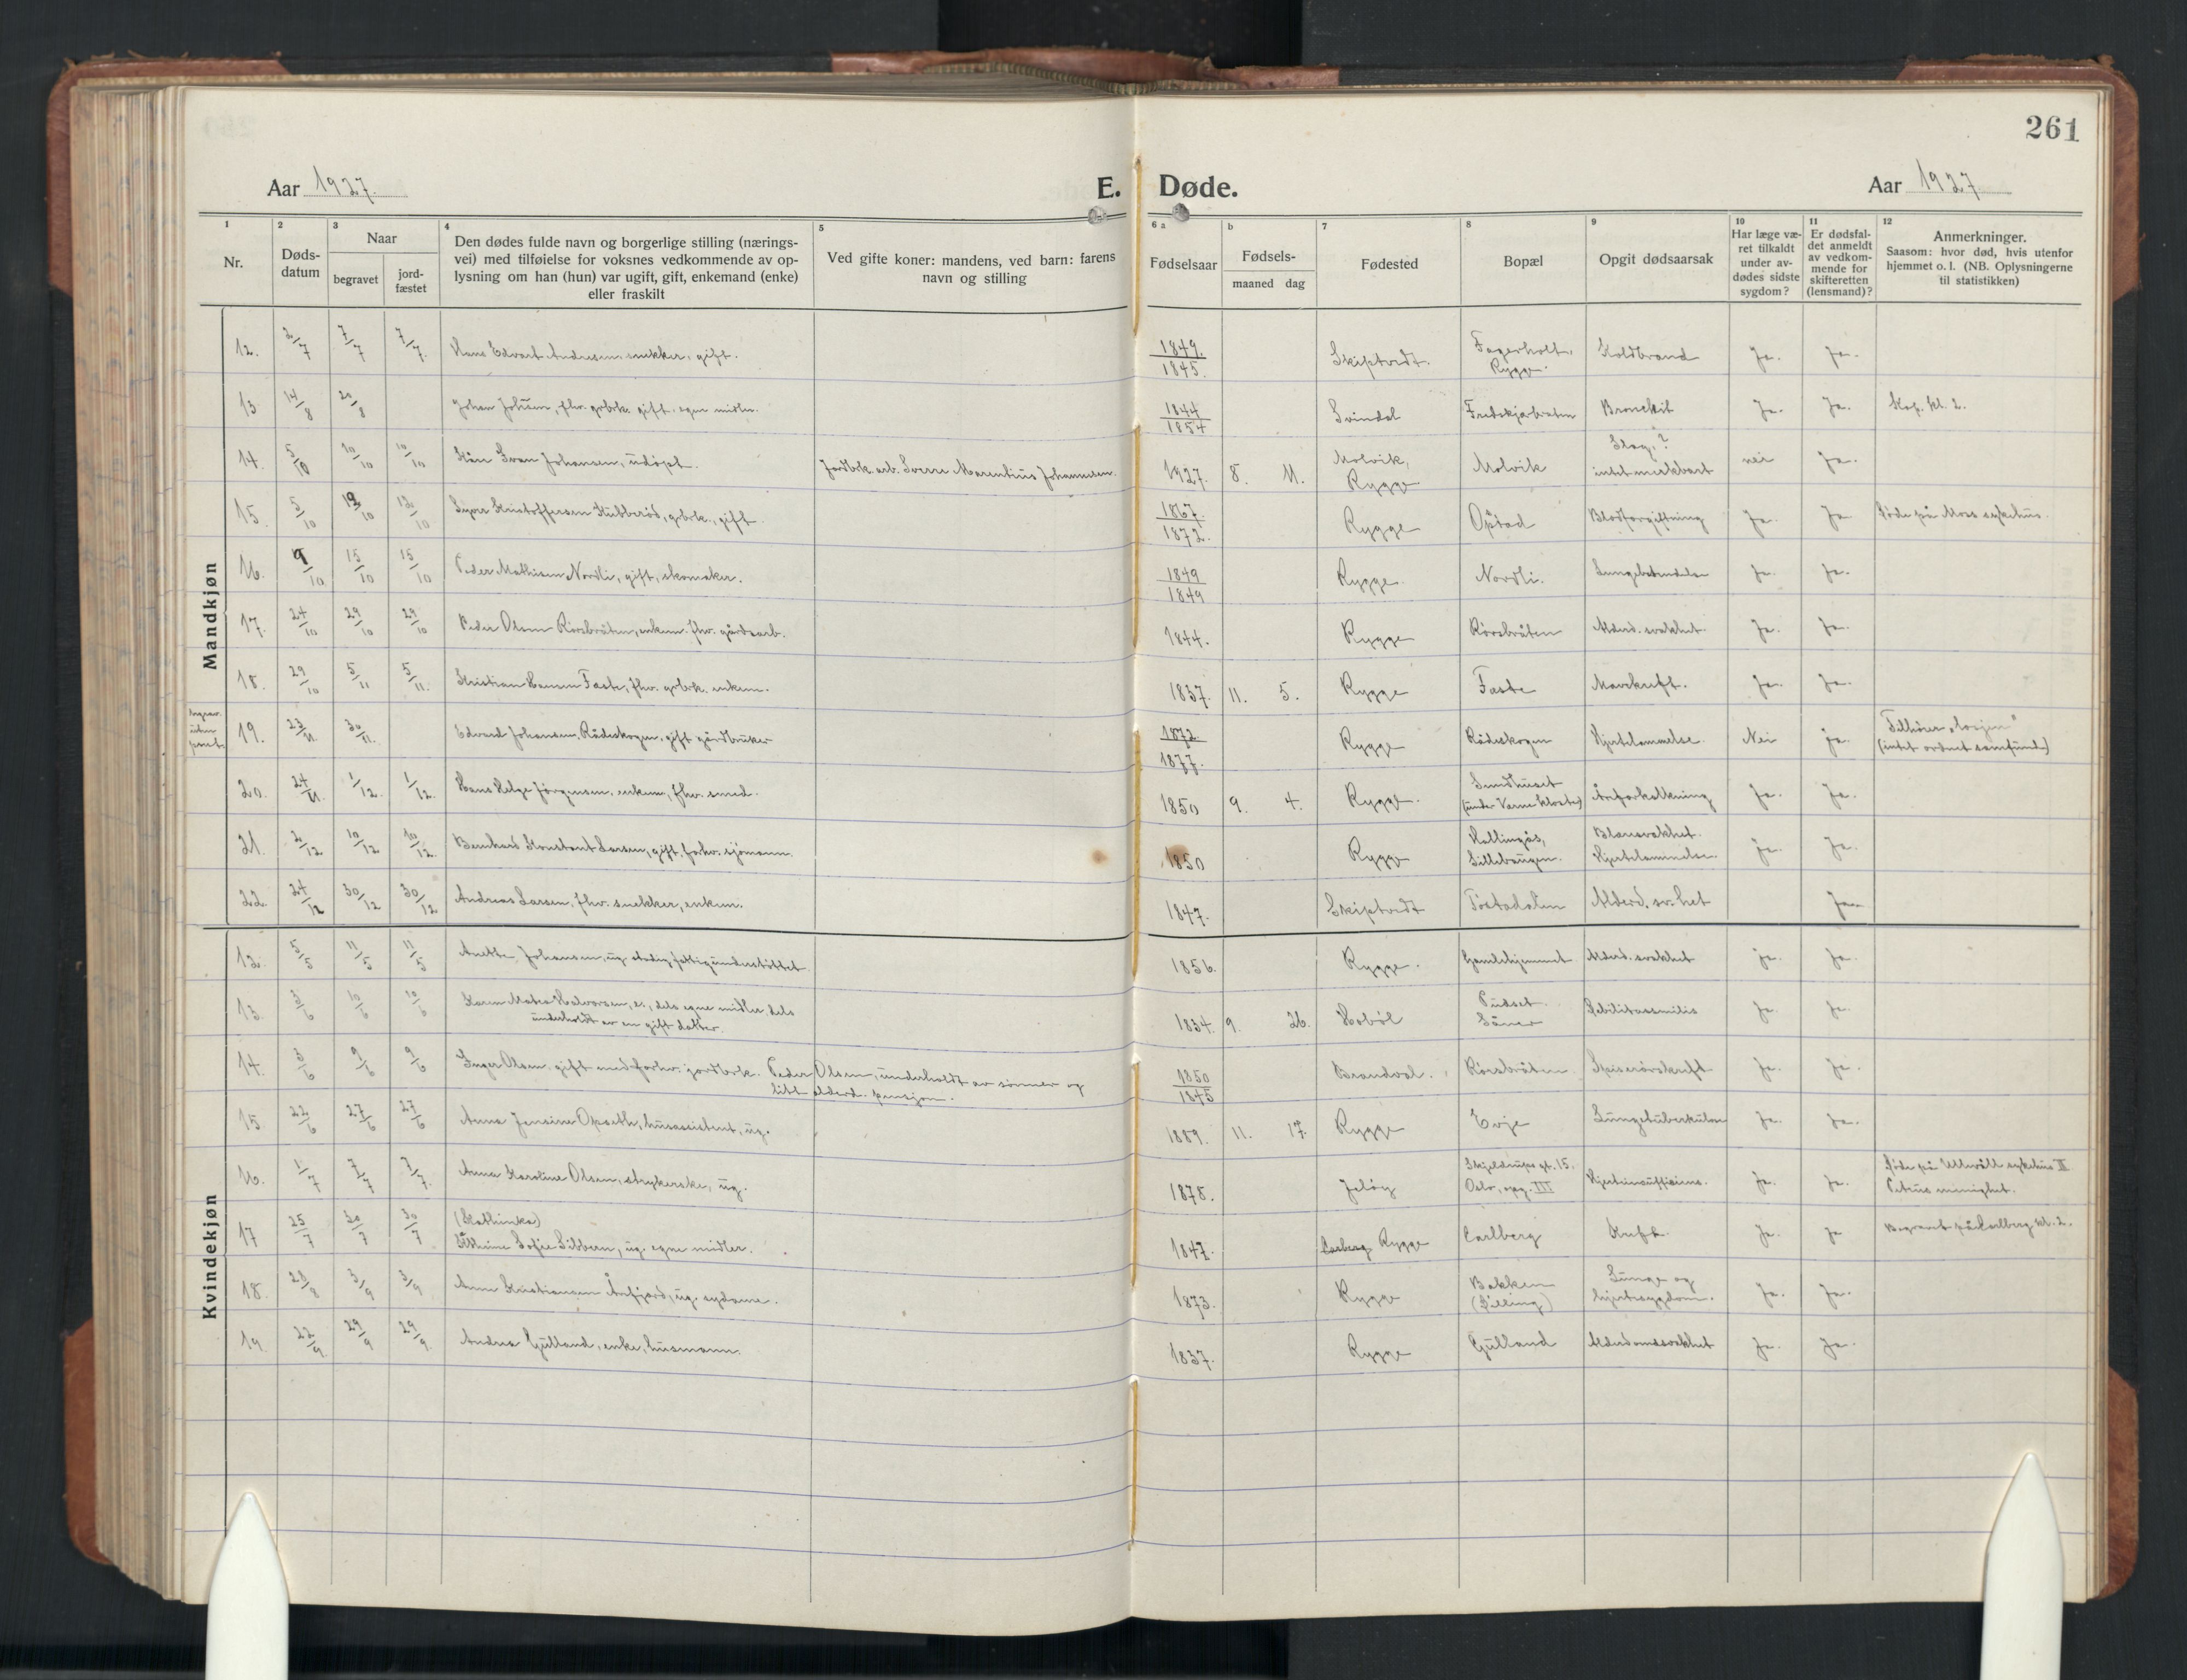 261
Aar 1927. E. Døde. Aar 1927
1 2 3 4 5 6 a b 7 8 9 10 11 12
Nr. Døds-datum Naar begravet jord-fæstet Den dødes fulde navn og borgerlige stilling (nærings-vei) med tilføielse for voksnes vedkommende av op-lysning om han (hun) var ugift, gift, enkemand (enke) eller fraskilt Ved gifte koner: mandens, ved barn: farens navn og stilling Fødselsaar Fødsels- maaned dag Fødested Bopæl Opgit dødsaarsak Har læge væ-ret tilkaldt under av-dødes sidste sygdom? Er dødsfal-det anmeldt av vedkom-mende for skifteretten (lensmand)? Anmerkninger. Saasom: hvor død, hvis utenfor hjemmet o. l. (NB. Oplysningerne til statistikken)
Mandkjøn
12. 2/7 7/7 7/7. Hans Edvart Andresen snekker, gift. 1849. 1845. Skiptvedt. Fagerholt, Rygge. Koldbrand Ja. Ja.
13 14/8 20/8 Johan Johsen, fhv. grbrk. gift. egne midler. 1844 1854 Svindal Fredskjærbråten Bronchit Ja. Ja. Kap. kl. 2.
14. 5/10 10/10 10/10 Kåre Ivan Johansen, udøpt. Jordbrk. arb. Sverre Marentius Johannesen. 1927. 8. 11. Molvik, Rygge Molvik Slag? intet merkbart nei ja.
15. 5/10 12/10 12/10 Syver Kristoffersen Kubberød, grbrk., gift. 1867. 1872. Rygge Opstad Blodforgiftning Ja. Ja Døde på Moss sykehus.
16. 9/10 15/10 15/10 Peder Mathisen Nordli, gift, skomaker. 1849 1849 Rygge. Nordli. Lungebetendelse Ja. Ja.
17. 24/10 29/10 29/10 Peder Olsen Rørsbråten, enkem. fhv. gårdsarb. 1844. Rygge Rörsbråten Alderd. svakhet. Ja. Ja.
18. 29/10 5/11 5/11. Kristian Hansen Faste, fhv. grbrk. enkem. 1837. 11. 5. Rygge Faste Mavekreft. Ja. Ja.
uten prest 19. 23/11. 30/11. Edvard Johansen, Rådeskogen, gift gårdbruker 1872. 1877. Rygge Rådeskogen Hjertelammelse. Nei ja. Tilhører "losjen" (intet ordnet samfund)
20. 24/11. 1/12. 1/12. Hans Helge Jörgensen. enkem, fhv. smed. 1850 9. 4. Rygge. Sundhuset (under Værne Kloster) Åreforkalkning Ja. Ja.
21. 2/12 10/12 10/12. Bernhard Konstant Larsen, gift. forhv. sjömann. 1850 Rygge Kallingås, Sillebaugen. Blæresvakhet. Hjertelammelse. ja. Ja.
22. 24/12 30/12 30/12 Andreas Larsen, fhv. snekker, enkem. 1847. Skiptvedt Tostadalen Alderd. sv.het Ja
Kvindekjøn
12. 5/5 11/5 11/5 Anette Johansen, ug. stadig fattigunderstöttet 1856. Rygge. Gamlehjemmet Alderd. svakhet ja. Ja.
13. 3/6 10/6 10/6 Karen Matea Halvorsen, e., dels egne midler, dels underholdt av en gift datter. 1834. 9. 26. Hobøl Pudset Såner Debilitas senilis Ja. Ja.
14. 3/6 9/6 9/6 Inger Olsen. gift med forhv. jordbrk. Peder Olsen, underholdt av sönner og litt alderd. pensjon. 1850 1845 Brandval. Rörsbråten Spiserörskreft Ja. Ja.
15 22/6 27/6 27/6 Anna Jensine Opseth, husassistent, ug. 1889. 11. 17. Rygge Evje Lungetuberkulose Ja. Ja.
16. 1/7 7/7 7/7. Anna Karoline Olsen, strykerske, ug. 1878. Jelöy Skjeldrups gt. 15. Oslo, opg. III Hjerteinsuffisiens. Ja. Ja. Döde på Ullevåll sykehus III Petrus menighet.
17 25/7 30/7 30/7 (Kathinka) Kathrine Sofie Sibbern, ug. egne midler. 1847. Rygge Carlberg Kreft Ja. Ja Begravet på Carlberg kl. 2.
18. 28/8 3/9 3/9 Anna Kristiansen Årefjord, ug. sydame. 1873. Rygge Bakken (Dilling) Lunge og hjertesygdom. Ja. Ja.
19. 22/9. 29/9 29/9. Andrea Gulland, enke, husmann. 1837. Rygge Gulland Alderdomssvakhet Ja. Ja.